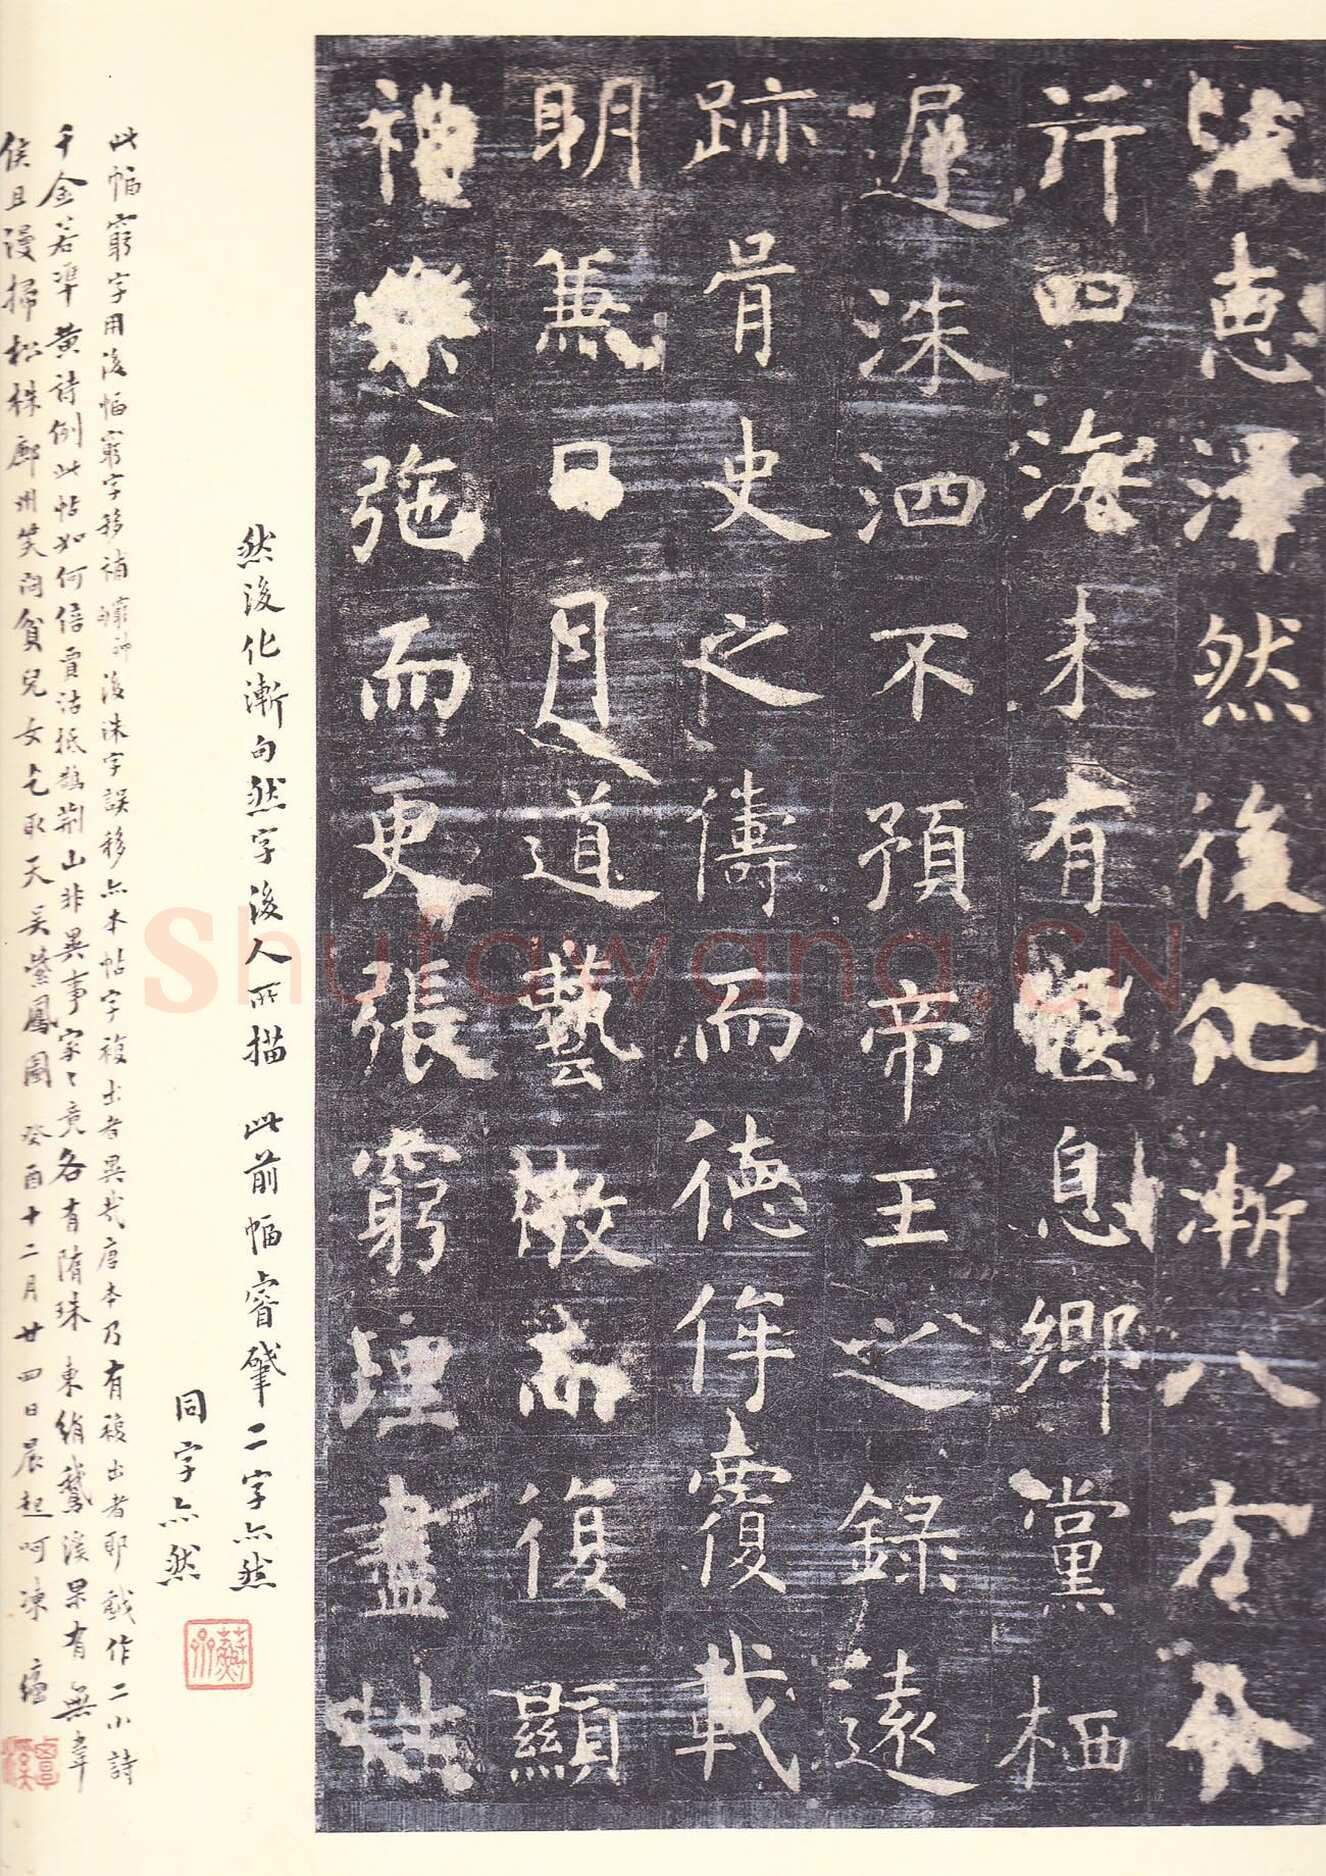 惠澤然後化漸八方
行四海未有偃息鄉黨栖
遲洙泗不預帝王之錄遠
跡胥史之儔而德侔覆載
明兼日月道藝微而復顯
禮樂弛而更張窮理盡性
然後化漸句然字後人所描 此前幅睿肇二字亦然
同字亦然
此幅窮字用後幅窮字移補 後洙字誤移亦本帖字複出者異哉唐本乃有複出者耶戲作二小詩
千金若準黃詩例此帖如何倍賈沽抵鵲荆山非異事家〻竟各有隋珠 東絹鵞溪果有無韋
侯且漫掃松株廊州笑問貧兒女乞取天吳紫鳳圖 癸酉十二月廿四日晨起呵凍
shufawang.CN